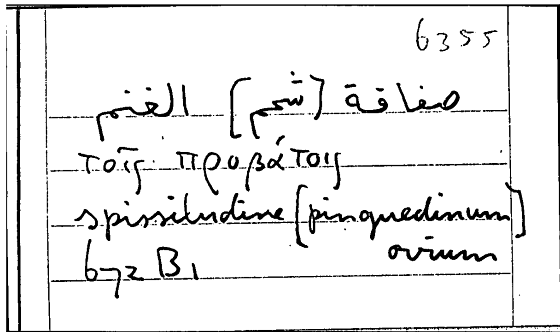 6355
صفاقة [شحم] الغنم
τοῖς προβάτοις
spissitudine [pinquedinum]
672 B1 ovium